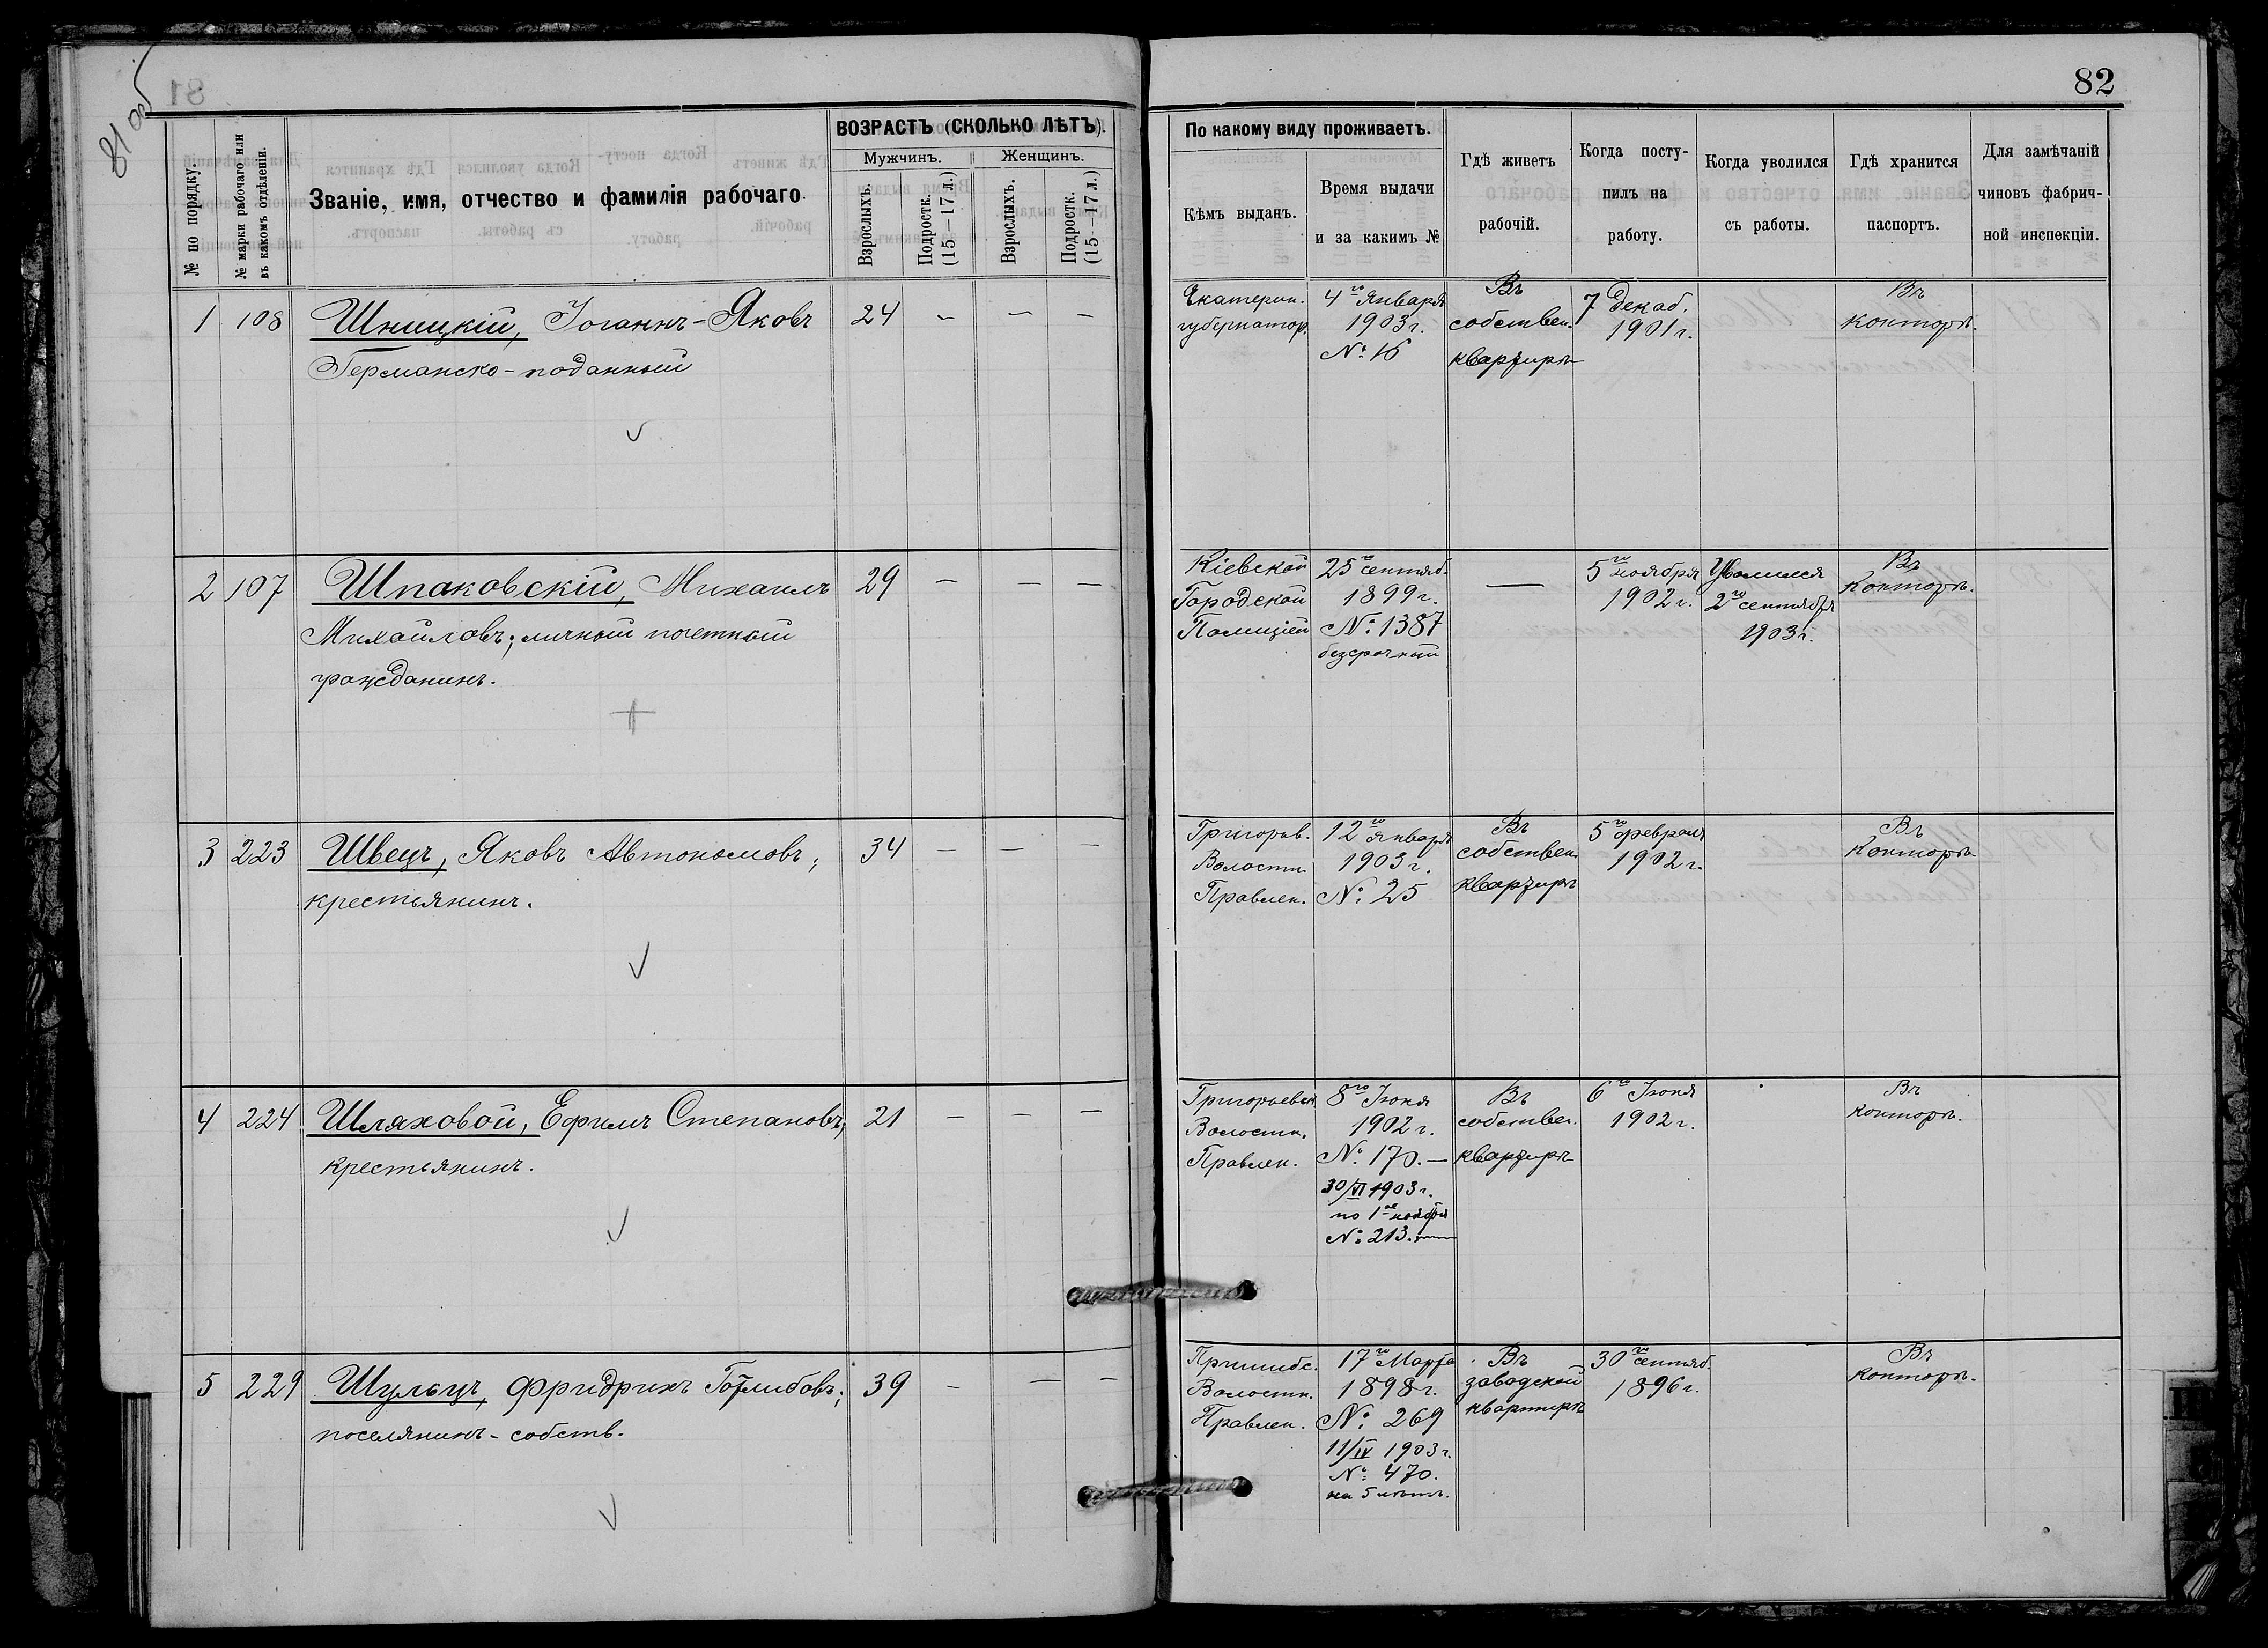 81 об
82
№ по порядку.
№ марки рабочаго или
въ какомъ отдѣленіи.
Званіе, имя, отчество и фамилія рабочаго.
ВОЗРАСТЪ (СКОЛЬКО ЛѢТЪ).
Мужчинъ.
Женщинъ.
Взрослыхъ.
Подростк.
(15—17 л.)
Взрослыхъ.
Подростк.
(15—17 л.)
По какому виду проживаетъ.
Кѣмъ выданъ.
Время выдачи
и за какимъ №
Гдѣ живетъ
рабочій.
Когда посту-
пилъ на
работу.
Когда уволился
съ работы.
Гдѣ хранится
паспортъ.
Для замѣчаній
чиновъ фабрич-
ной инспекціи.
1 108 Шницкій, Іоганнъ-Яковъ 24 — — —
Германско-поданный
Екатерин.
губернатор.
4го Января
1903 г.
№ 16
Въ
собствен.
квартирѣ
7 Декаб.
1901 г.
Въ
Конторѣ.
2 107 Шпаковскій, Михаилъ 29 — — —
Михайловъ; личный почетный
гражданинъ.
Кіевской
Городской
Полиціей
25го сентяб.
1899 г.
№ 1387
безсрочный
—
5го ноября
1902 г.
Уволился
2го сентября
1903 г.
Въ
Конторѣ.
3 223 Швецъ, Яковъ Автономовъ; 34 — — —
крестьянинъ.
Григорьв.
Волостн.
Правлен.
12го Января
1903 г.
№ 25
Въ
собствен.
квартирѣ
5го февраля
1902 г.
Въ
Конторѣ.
4 224 Шляховой, Ефимъ Степановъ; 21 — — —
крестьянинъ.
Григорьевск.
Волостн.
Правлен.
8го Іюня
1902 г.
№ 170.—
30/VI 1903 г.
по 1ое ноября
№ 213.—
Въ
собствен.
квартирѣ
6го Іюня
1902 г.
Въ
конторѣ.
5 229 Шульцъ, Фридрихъ Готлибовъ; 39 — — —
поселянинъ-собств.
Пришибс.
Волостн.
Правлен.
17го Марта
1898 г.
№ 269
11/IV 1903 г.
№ 470.
на 5 лѣтъ.
Въ
заводской
квартирѣ
30го сентяб.
1896 г.
Въ
Конторѣ.